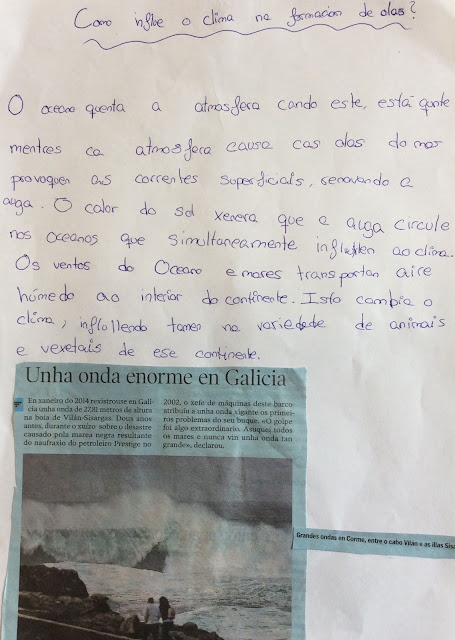 Como inflúe o clima na formación de olas?
O oceano quenta a atmosfera cando este, está quente
mentres ca atmosfera causa cas olas do mar
provoquen as correntes superficiais, renovando a
auga. O calor do sol xenera que a auga circule
nos oceanos que simultaneamente inflúen ao clima.
Os ventos do Oceano e mares transportan aire
húmedo ao interior do continente. Isto cambia o
clima, influllendo tamen na variedade de animais
e vexetais de ese continente.
Unha onda enorme en Galicia
En xaneiro do 2014 rexistrouse en Gali-
cia unha onda de 27,81 metros de altura
na boia de Vilán-Sisargas. Dous anos
antes, durante o xuízo sobre o desastre
causado pola marea negra resultante
do naufraxio do petroleiro Prestige no
2002, o xefe de máquinas deste barco
atribuíu a unha onda xigante os primei-
ros problemas do seu buque. «O golpe
foi algo extraordinario. Asuquei todos
os mares e nunca vin unha onda tan
grande», declarou.
Grandes ondas en Corme, entre o cabo Vilán e as illas Sisa